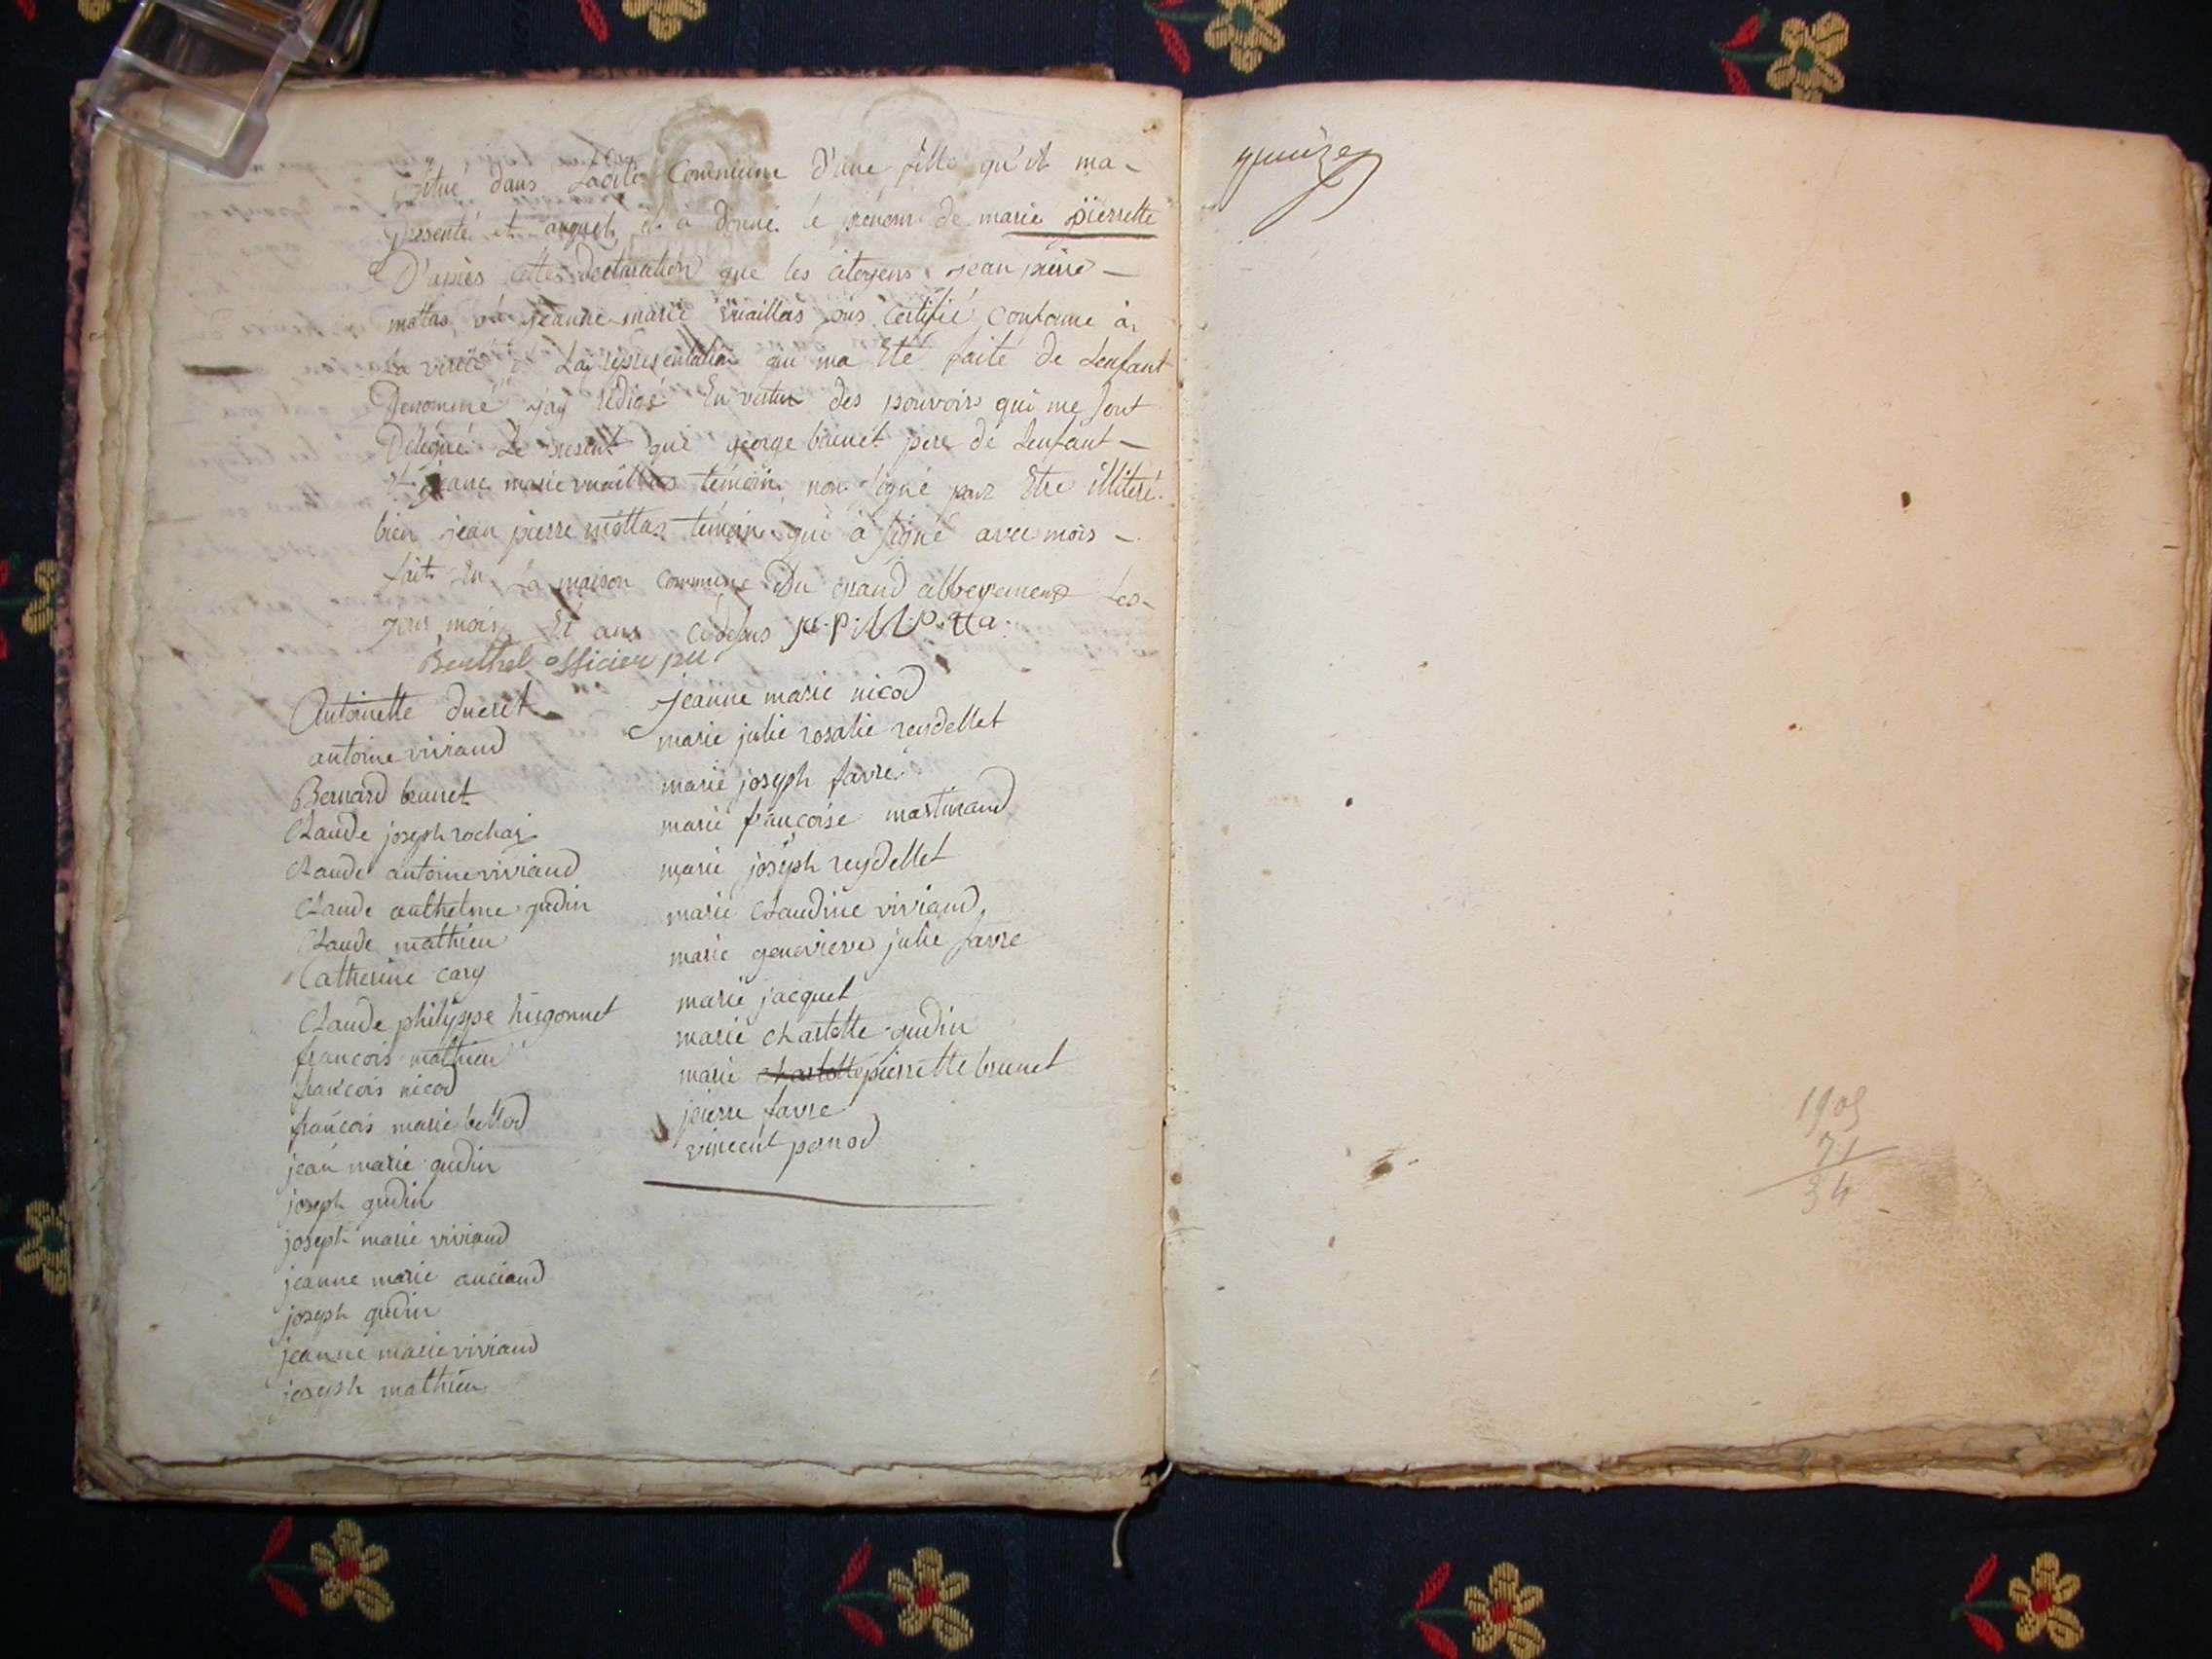 situé dans Ladite Commune d'une fille qu'il ma-
presenté et auquel il à donné le prénom de marie pierrette
D'après cette declaration que les citoyens jean pierre-
mottas et jeanne marie vuaillas ons certifié conforme à
La verité La representation qui ma Eté faite de Lenfant
Denommé jay rédigé En vertu des pouvoirs qui me sont
Délégué Le present que george brunet pere de Lenfant-
et jeane marie vuaillas témoin non signé pour Etre illiteré
bien jean pierre mottas témoin qui à signé avec mois-
fait En La maison commune Du grand abbergement Les-
jour mois Et ans cidessus
Berthet officier pu
Antoinette ducret
antoine viviand
Bernard brunet
Claude joseph rochaix
Claude antoine viviand
Claude anthelme gudin
Claude mathieu
Catherine cary
Claude philippe hugonnet
francois mathieu
francois nicod
francois marie bellod
jean marie gudin
joseph gudin
joseph marie viviand
jeanne marie anciand
joseph gudin
jeanne marie viviand
joseph mathieu
jeanne marie nicod
marie julie rosalie reydellet
marie joseph favre
marie francoise martinand
marie joseph reydellet
marie Claudine viviand
marie genevieve julie favre
marie jacquet
marie charlotte gudin
marie charlotte pierrette brunet
pierre favre
vincent ponod
quinze
1905
71
34